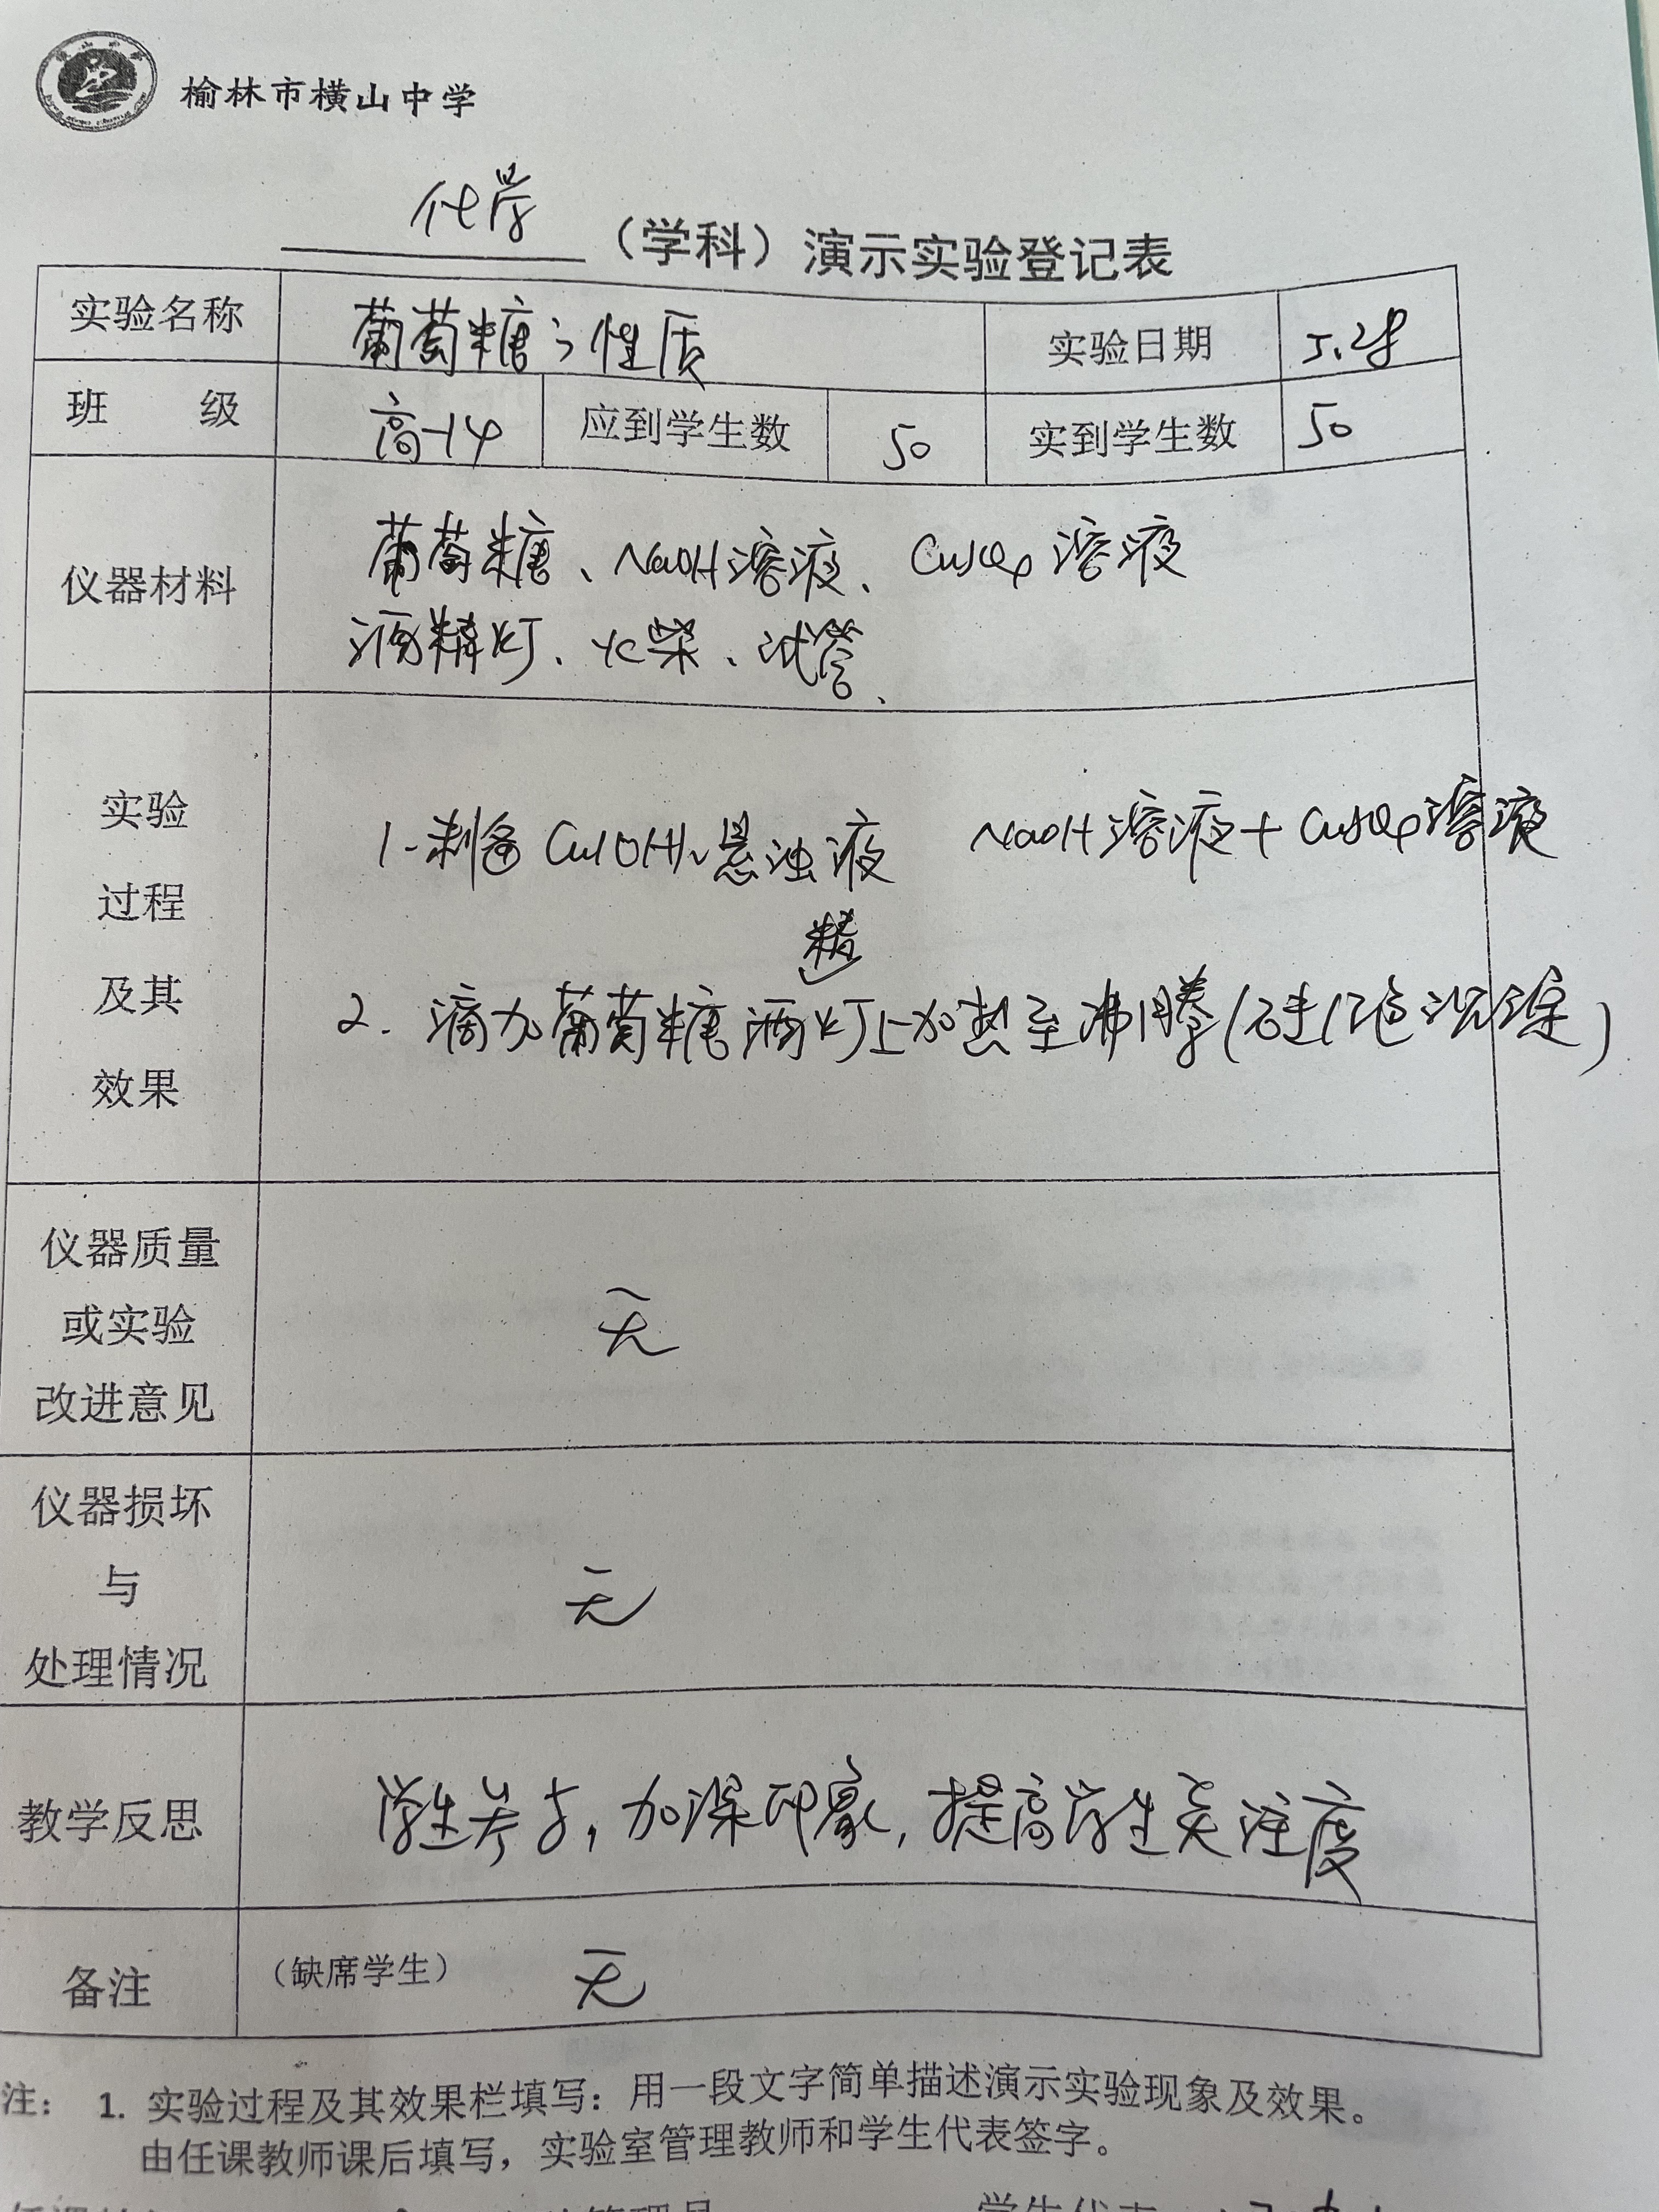 榆林市横山中学
化学（学科）演示实验登记表
实验名称 葡萄糖的性质 实验日期 5.28
班 级 高一14 应到学生数 50 实到学生数 50
仪器材料 葡萄糖、NaOH溶液、CuSO4溶液
酒精灯、火柴、试管、
实验
过程
及其
效果
1.制备Cu(OH)2悬浊液 NaOH溶液+CuSO4溶液
2.滴加葡萄糖酒精灯上加热至沸腾(砖红色沉淀)
仪器质量
或实验
改进意见
无
仪器损坏
与
处理情况
无
教学反思 学生参与,加深印象,提高学生关注度
备注 （缺席学生） 无
注： 1. 实验过程及其效果栏填写：用一段文字简单描述演示实验现象及效果。
由任课教师课后填写，实验室管理教师和学生代表签字。
管理员 学生代表